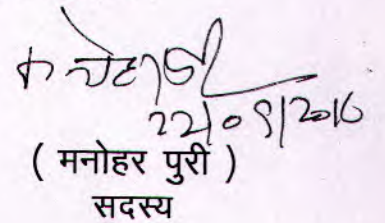 22/09/2016
( मनोहर पुरी )
सदस्य